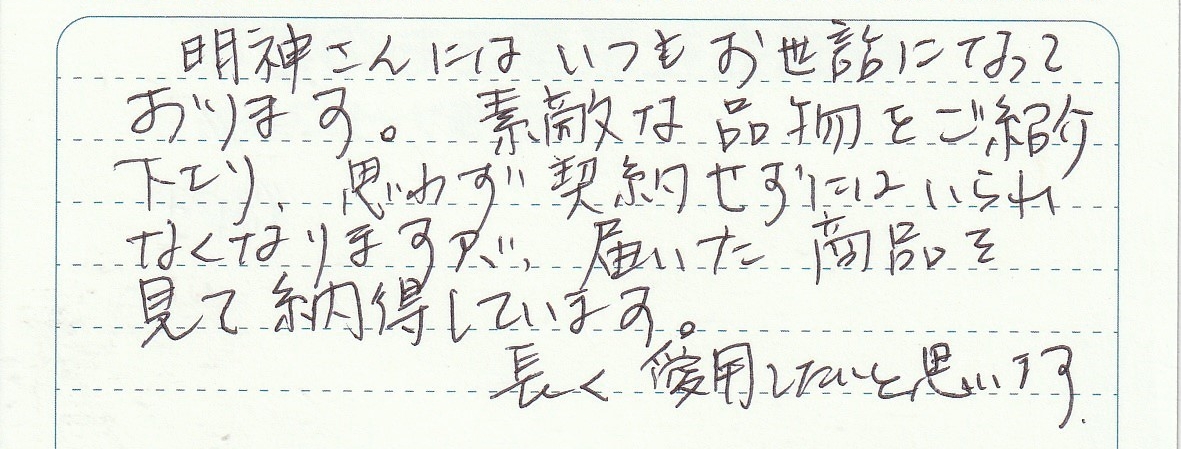 明神さんにはいつもお世話になって
おります。素敵な品物をご紹介
下さり、思わず契約せずにはいられ
なくなりますが、届いた商品を
見て納得しています。
長く愛用したいと思います.